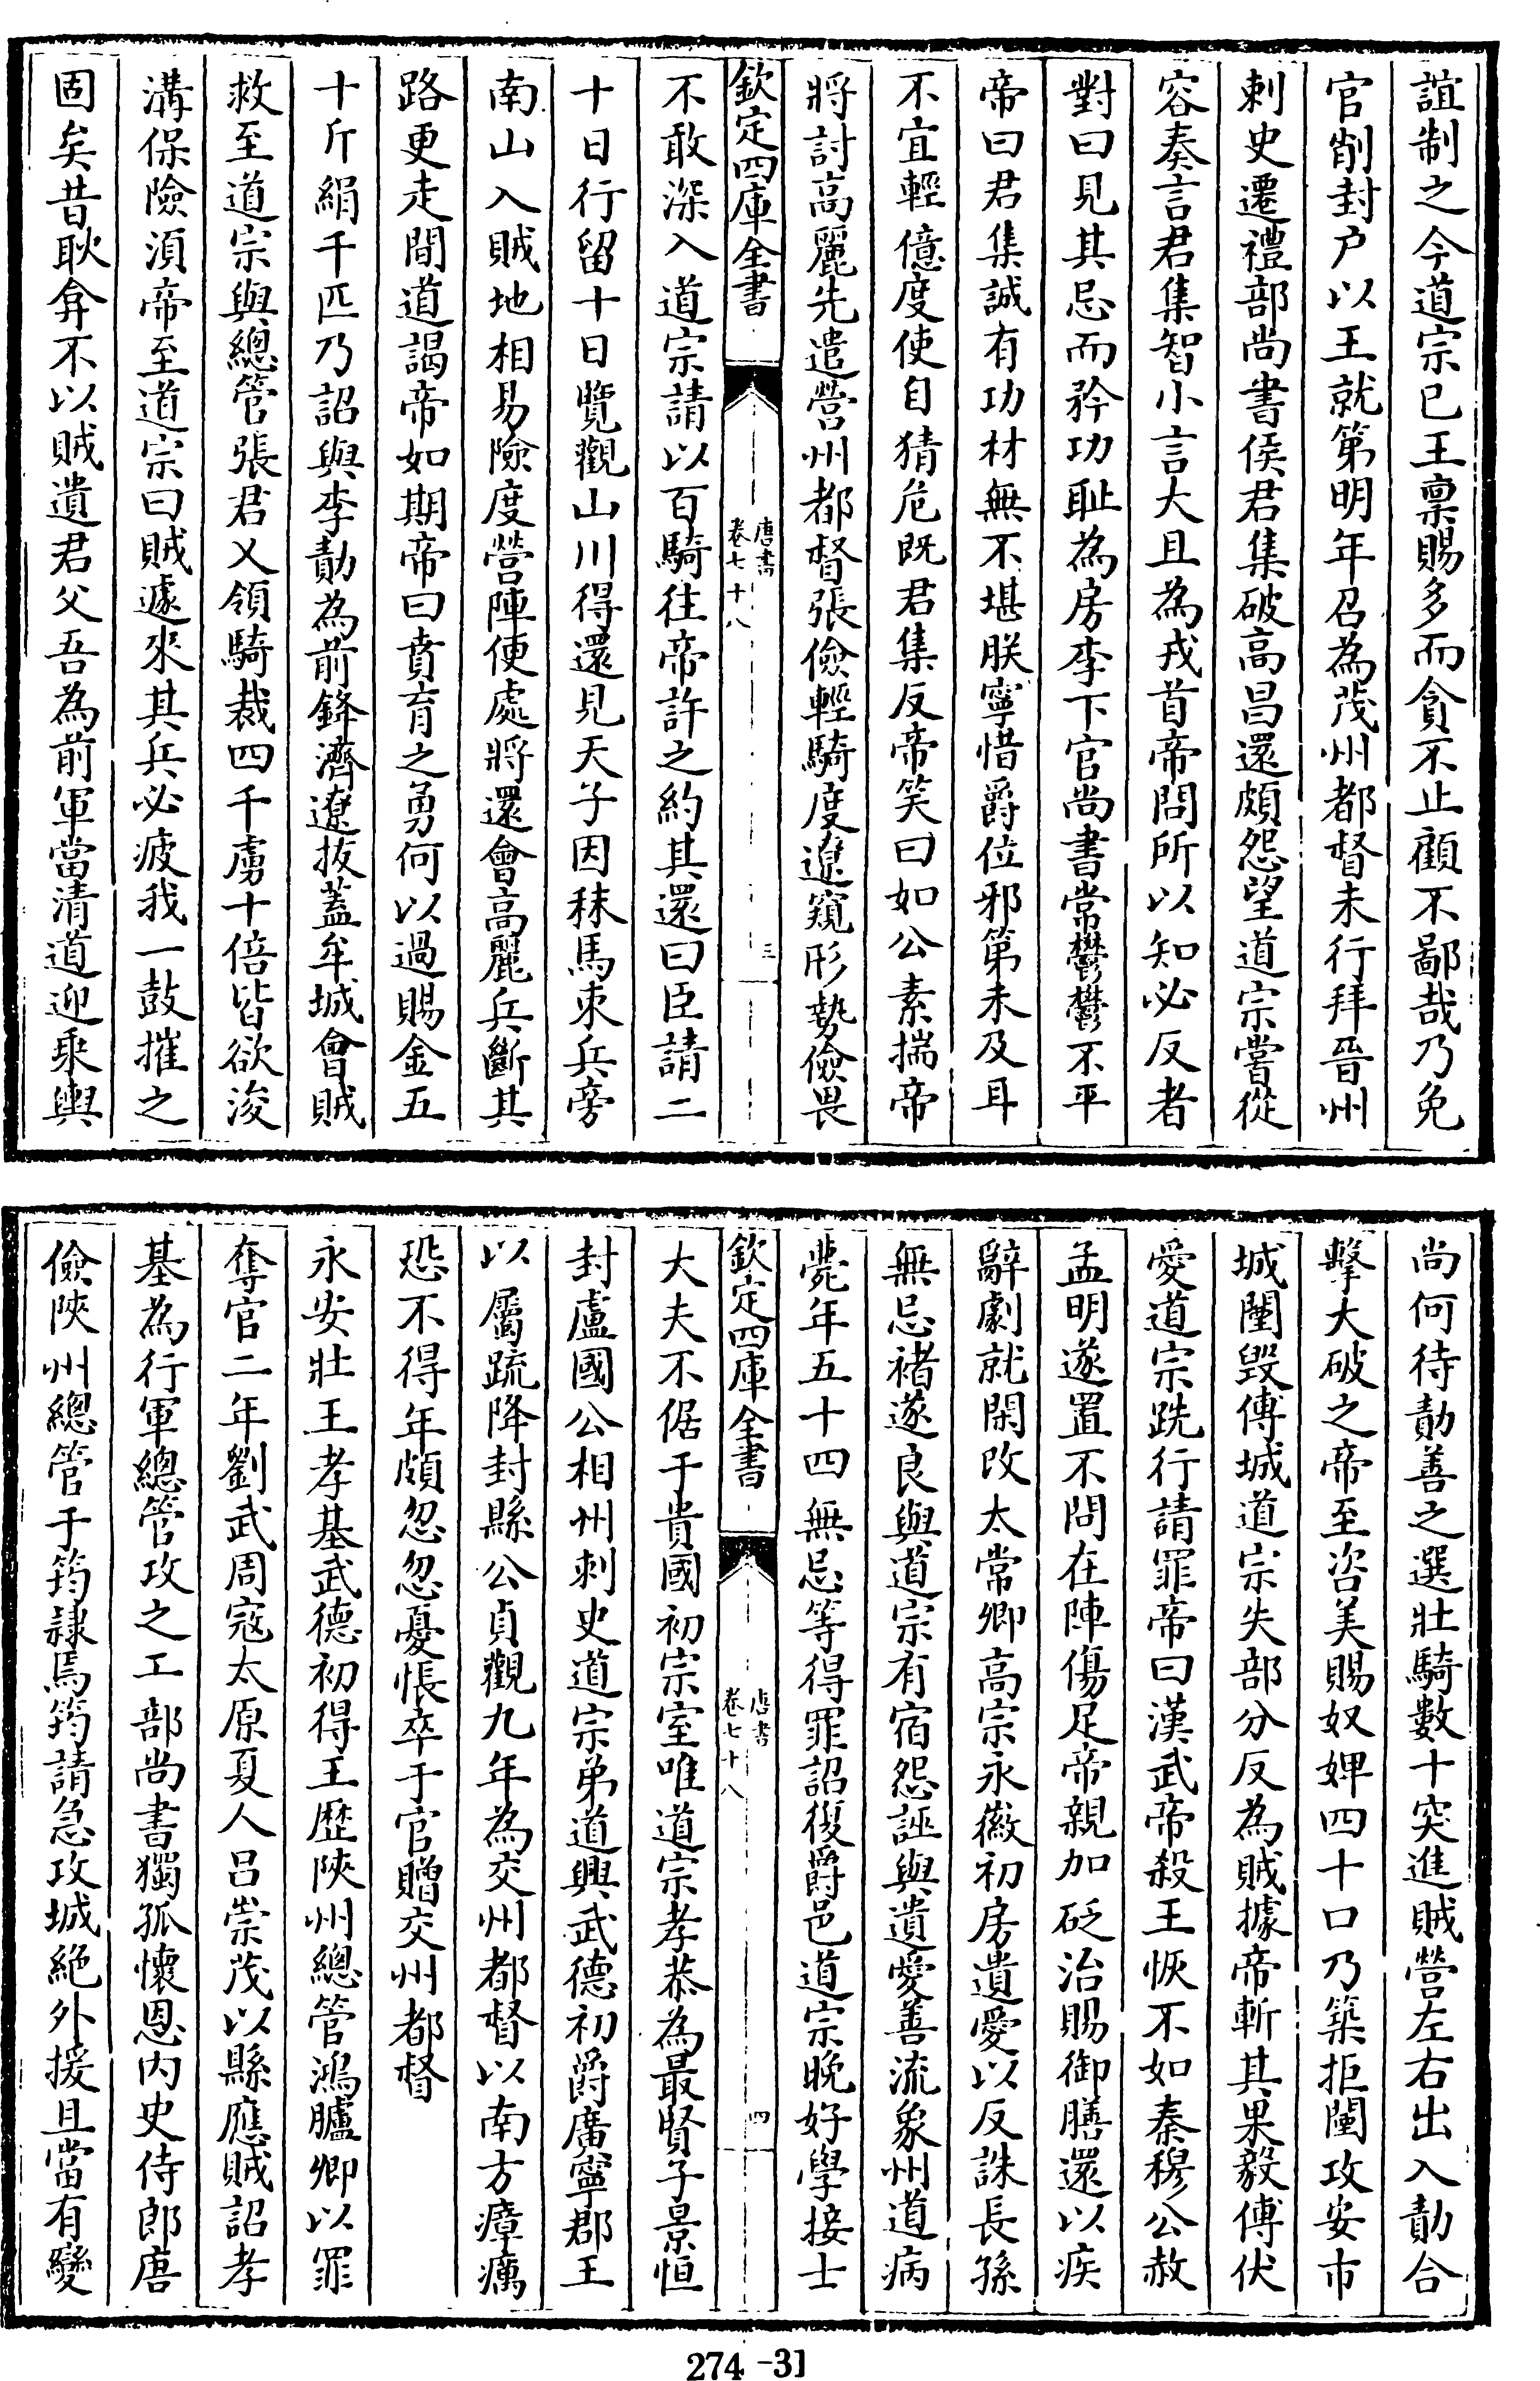 誼制之今道宗已王禀賜多而貪不止顧不鄙哉乃免
官削封户以王就第明年召為茂州都督未行拜晉州
刺史遷禮部尚書侯君集破高昌還頗怨望道宗嘗從
容奏言君集智小言大且為戎首帝問所以知必反者
對曰見其忌而矜功恥為房李下官尚書常鬱鬱不平
帝曰君集誠有功材無不堪朕寧惜爵位邪第未及耳
不宜輕億度使自猜危既君集反帝笑曰如公素揣帝
將討高麗先遣營州都督張儉輕騎度遼窺形勢儉畏
欽定四庫全書
唐書
卷七十八
三
不敢深入道宗請以百騎往帝許之約其還曰臣請二
十日行留十日覽觀山川得還見天子因秣馬束兵旁
南山入賊地相易險度營陣便處將還會高麗兵斷其
路更走間道謁帝如期帝曰賁育之勇何以過賜金五
十斤絹千匹乃詔與李勣為前鋒濟遼拔蓋牟城會賊
救至道宗與總管張君乂領騎裁四千虜十倍皆欲浚
溝保險須帝至道宗曰賊遽來其兵必疲我一鼓摧之
固矣昔耿弇不以賊遺君父吾為前軍當清道迎乘輿
尚何待勣善之選壯騎數十突進賊營左右出入勣合
擊大破之帝至咨美賜奴婢四十口乃築拒闉攻安市
城闉毀傅城道宗失部分反為賊據帝斬其果毅傅伏
愛道宗跣行請罪帝曰漢武帝殺王恢不如秦穆公赦
孟明遂置不問在陣傷足帝親加砭治賜御膳還以疾
辭劇就閑改太常卿高宗永徽初房遺愛以反誅長孫
無忌褚遂良與道宗有宿怨誣與遺愛善流象州道病
薨年五十四無忌等得罪詔復爵邑道宗晚好學接士
欽定四庫全書
唐書
卷七十八
四
大夫不倨于貴國初宗室唯道宗孝恭為最賢子景恒
封盧國公相州刺史道宗弟道興武德初爵廣寧郡王
以屬疏降封縣公貞觀九年為交州都督以南方瘴癘
恐不得年頗忽忽憂悵卒于官贈交州都督
永安壯王孝基武德初得王歷陝州總管鴻臚卿以罪
奪官二年劉武周寇太原夏人呂崇茂以縣應賊詔孝
基為行軍總管攻之工部尚書獨孤懷恩內史侍郎唐
儉陝州總管于筠隷焉筠請急攻城絶外援且當有變
274-31